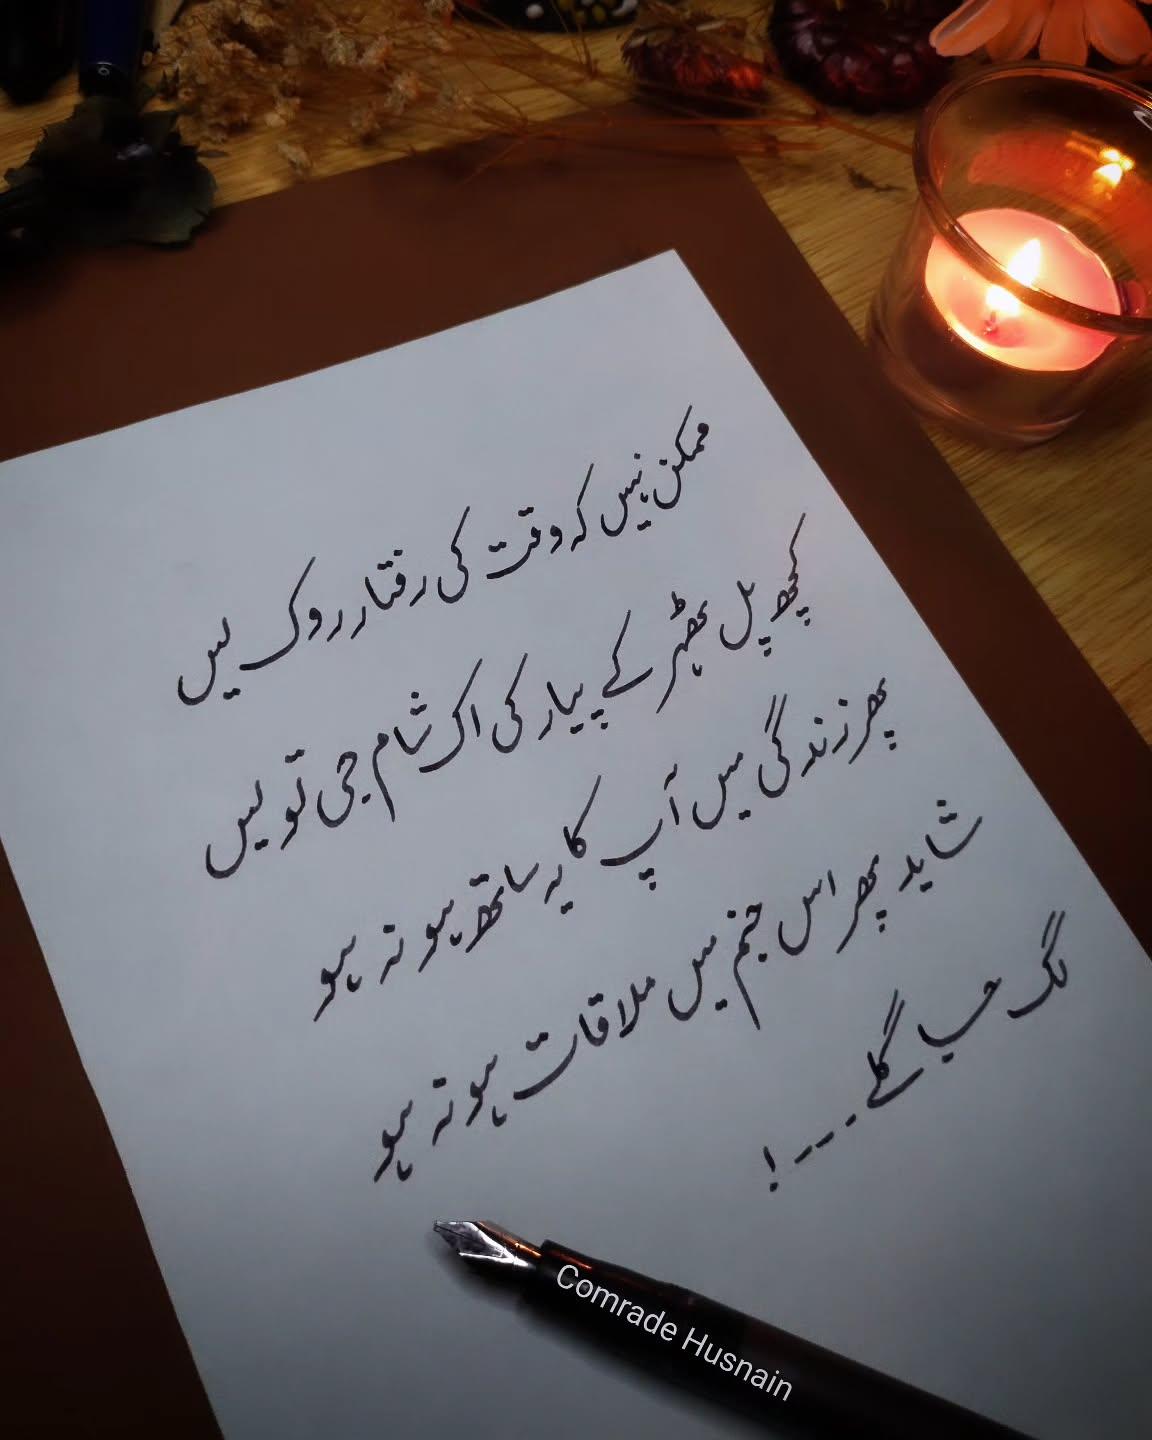 ممکن نہیں کہ وقت کی رفتار روک لیں
کچھ پل ٹھہر کے پیار کی اک شام جی تو لیں
پھر زندگی میں آپ کا یہ ساتھ ہو نہ ہو
شاید پھر اس جنم میں ملاقات ہو نہ ہو
لگ جا گلے ۔۔۔!
Comrade Husnain